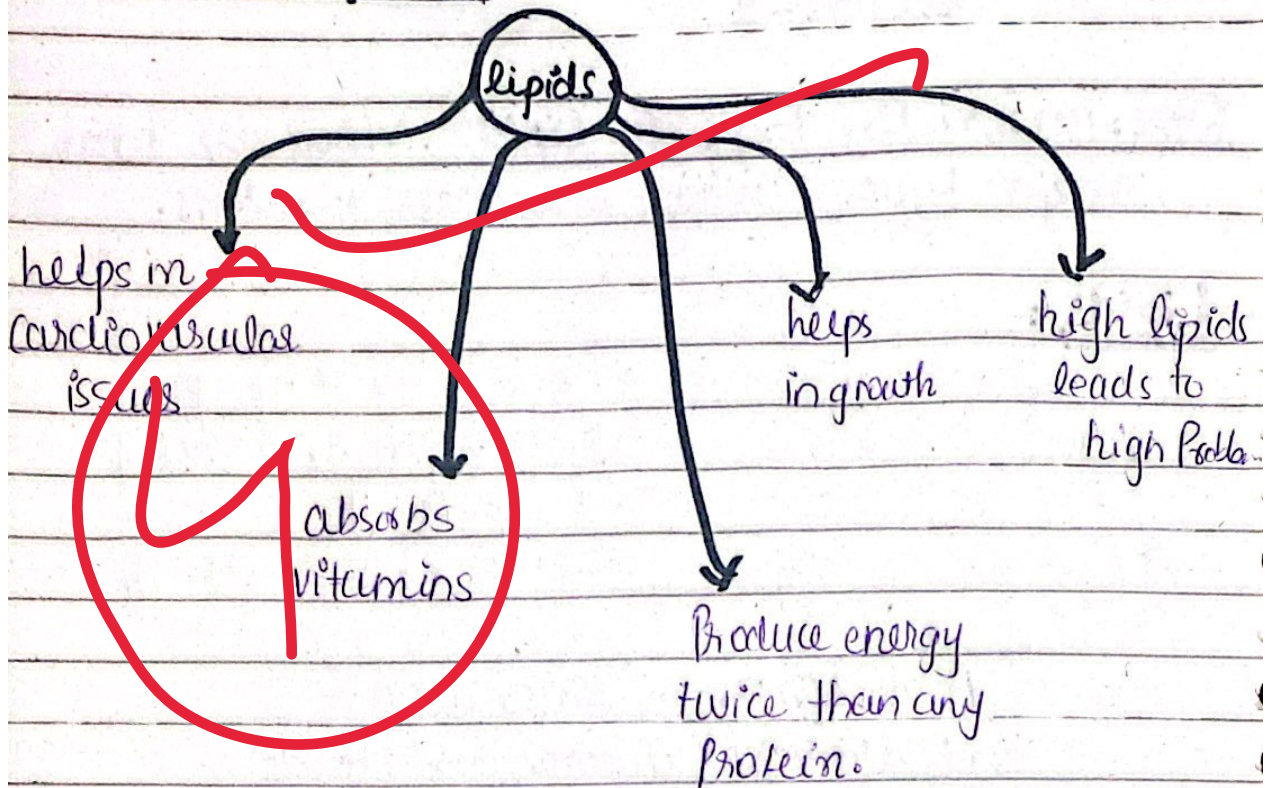 lipids
helps in
cardiovascular
issues
4
absorbs
vitamins
Produce energy
twice than any
Protein.
helps
in growth
high lipids
leads to
high